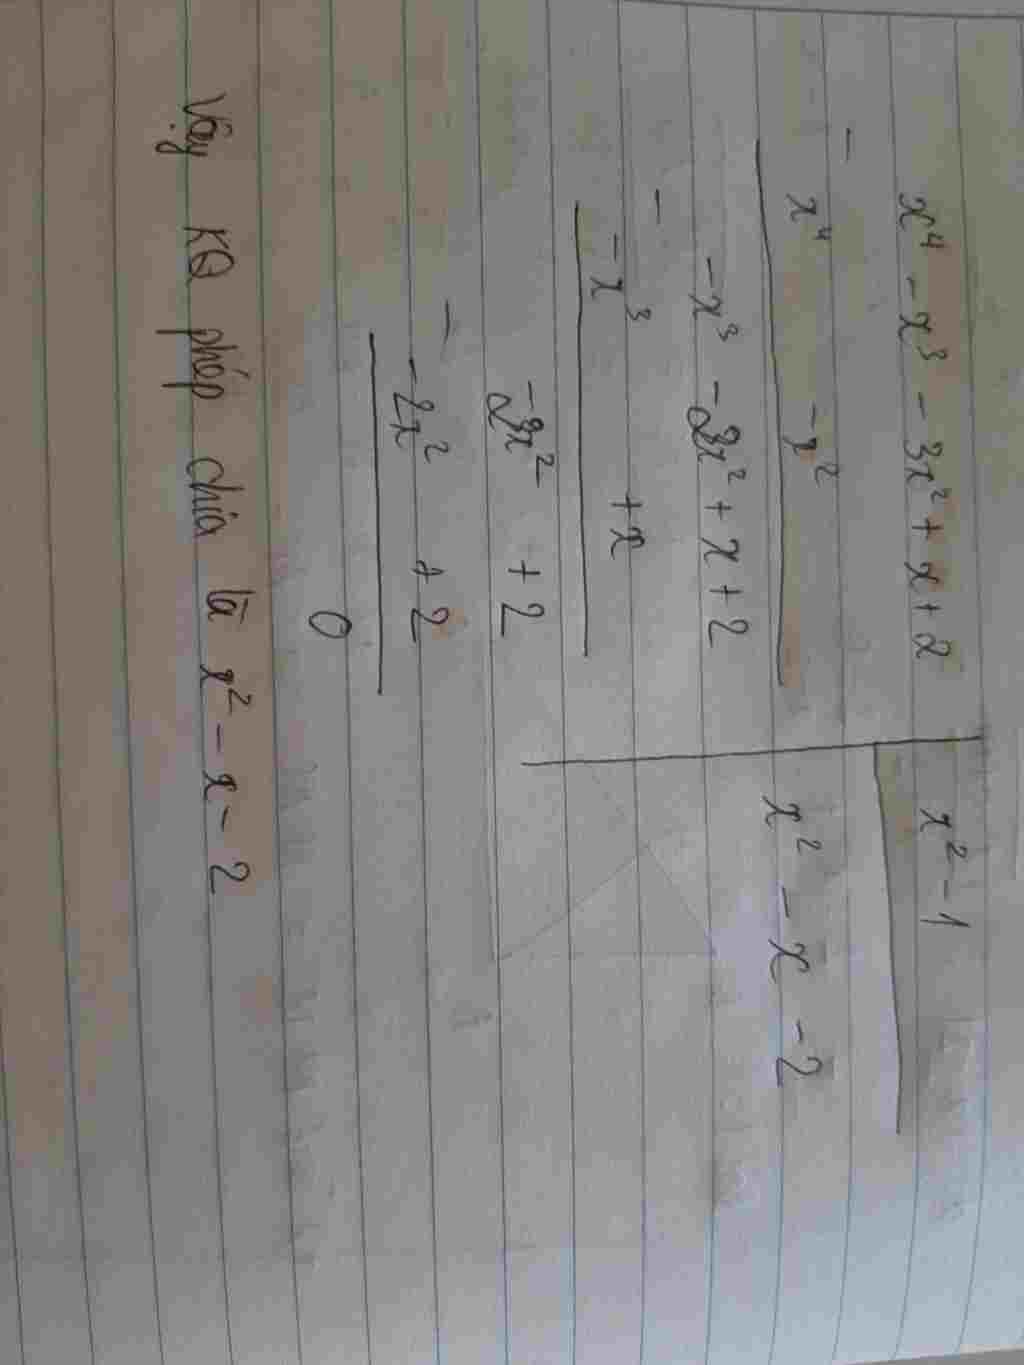 x⁴ - x³ - 3x² + x + 2 | x² - 1
- x⁴ - x² | x² - x - 2
-x³ - 2x² + x + 2
- -x³ + x
-2x² + 2
- -2x² + 2
0
Vậy KQ phép chia là x² - x - 2